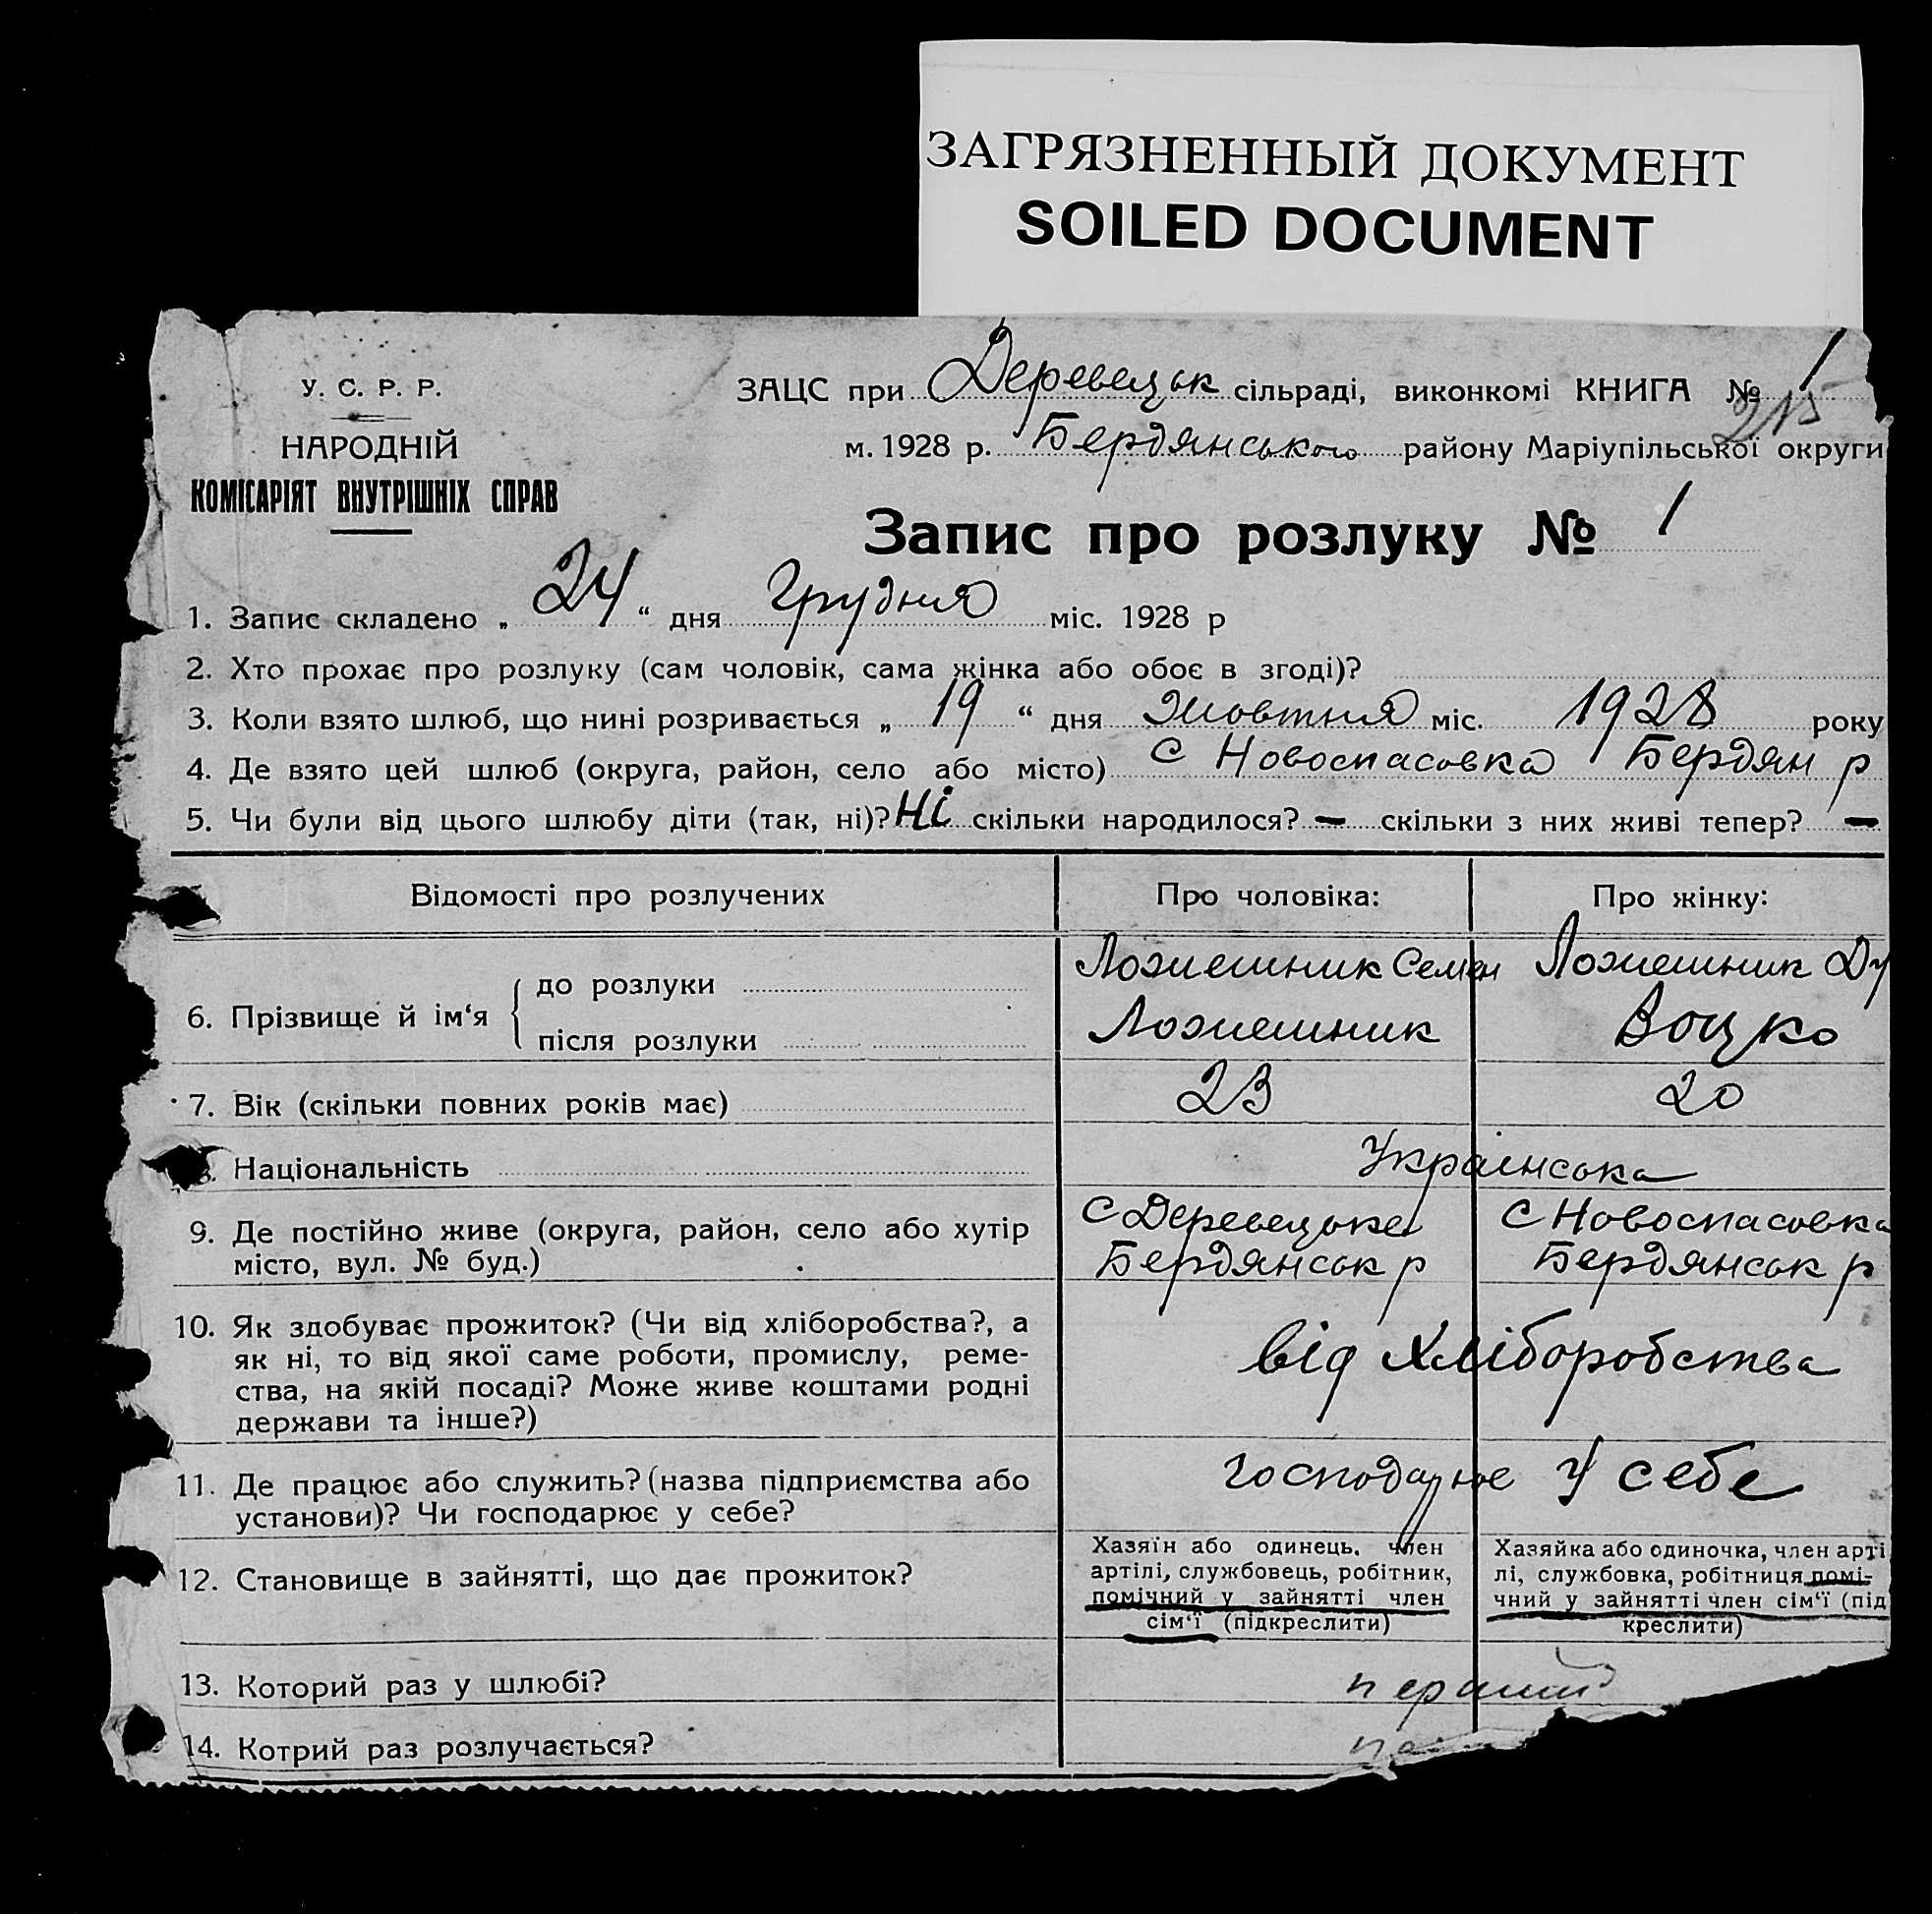 ЗАГРЯЗНЕННЫЙ ДОКУМЕНТ
SOILED DOCUMENT
У. С. Р. Р.
НАРОДНІЙ
КОМІСАРІЯТ ВНУТРІШНІХ СПРАВ
ЗАЦС при Деревецьк сільраді, виконкомі КНИГА № 1
215
м. 1928 р. Бердянського району Маріупільської округи
Запис про розлуку № 1
1. Запис складено „ 24 “ дня грудня міс. 1928 р
2. Хто прохає про розлуку (сам чоловік, сама жінка або обоє в згоді)?
3. Коли взято шлюб, що нині розривається „ 19 “ дня жовтня міс. 1928 року
4. Де взято цей шлюб (округа, район, село або місто) с Новоспасовка Бердян р
5. Чи були від цього шлюбу діти (так, ні)? Ні скільки народилося? — скільки з них живі тепер? —
Відомості про розлучених Про чоловіка: Про жінку:
6. Прізвище й ім‘я
до розлуки Ложешник Семен Ложешник Ду
після розлуки Ложешник Воцко
7. Вік (скільки повних років має) 23 20
8. Національність Українська
9. Де постійно живе (округа, район, село або хутір
місто, вул. № буд.)
с Деревецьке
Бердянськ р
с Новоспасовка
Бердянськ р
10. Як здобуває прожиток? (Чи від хліборобства?, а
як ні, то від якої саме роботи, промислу, реме-
ства, на якій посаді? Може живе коштами родні
держави та інше?)
від хліборобства
11. Де працює або служить? (назва підприємства або
установи)? Чи господарює у себе?
господарює у себе
12. Становище в зайнятті, що дає прожиток?
Хазяїн або одинець. член
артілі, службовець, робітник,
помічний у зайнятті член
сім‘ї (підкреслити)
Хазяйка або одиночка, член арті
лі, службовка, робітниця помі-
чний у зайнятті член сім‘ї (під
креслити)
13. Которий раз у шлюбі? перший
14. Котрий раз розлучається?